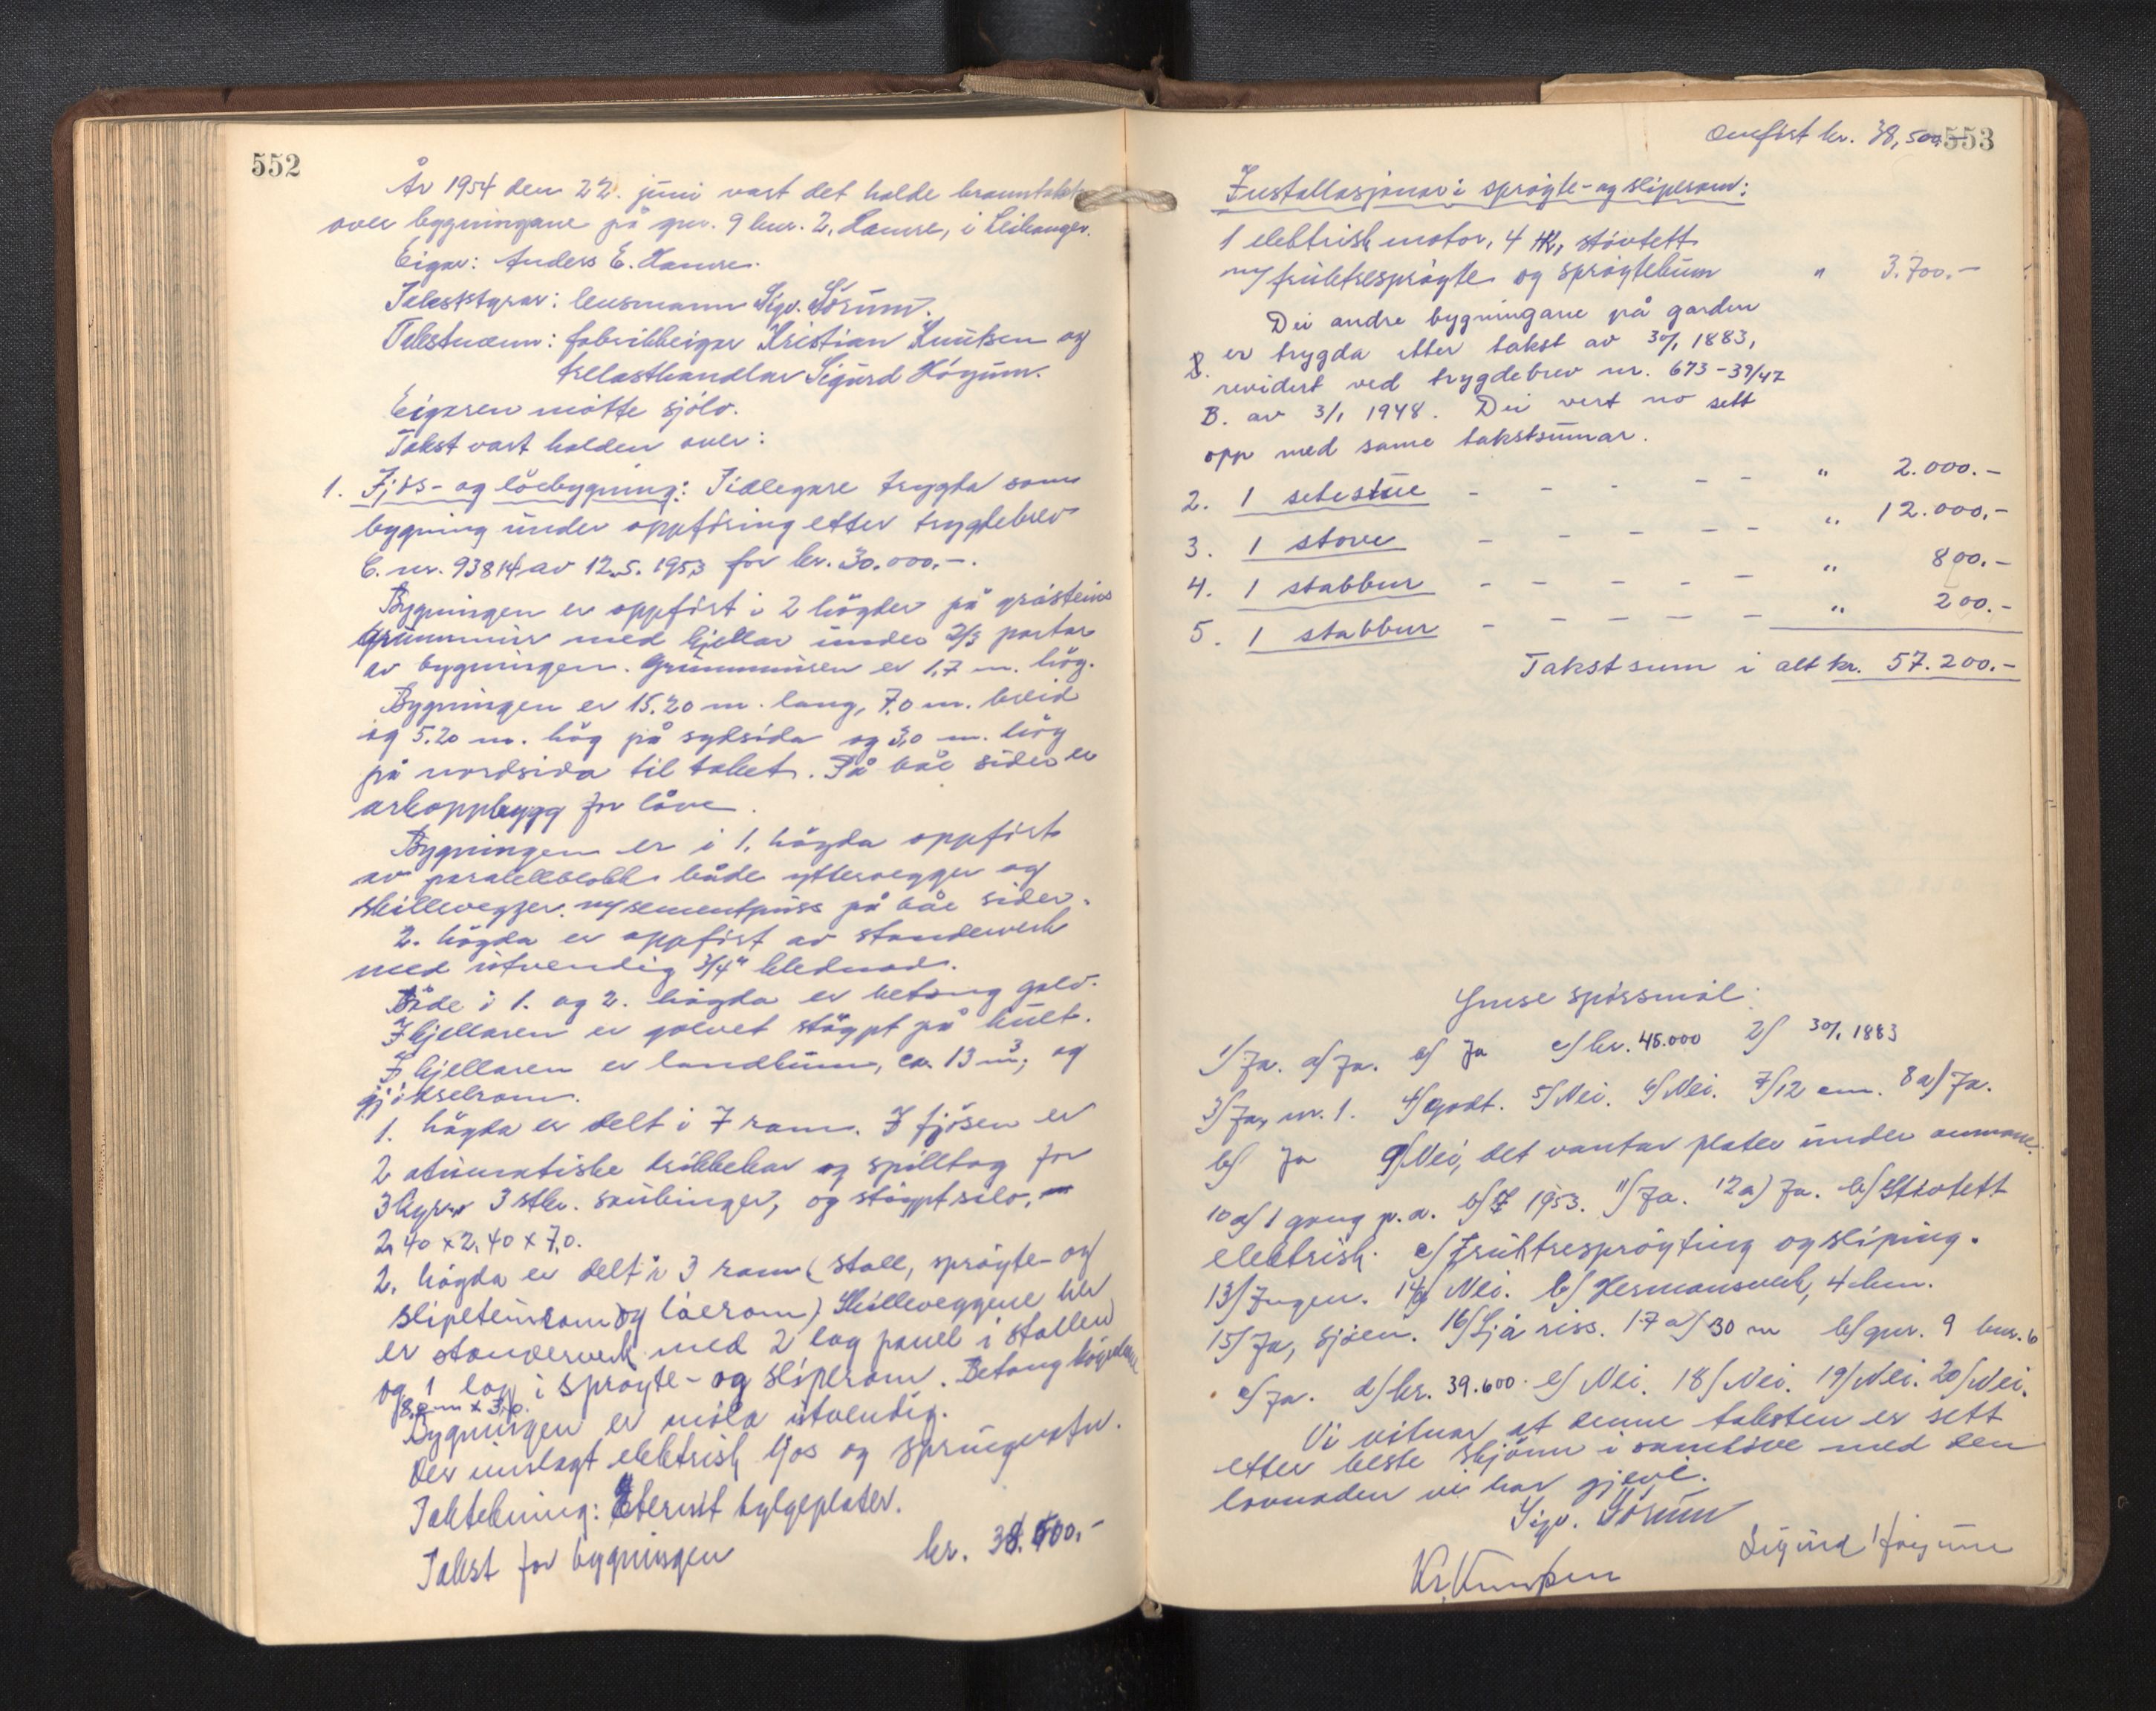 552
År 1954 den 22. juni vart det halde branntakst
over bygningane på gnr. 9 bnr. 2, Hamre, i Leikanger.
Eigar: Anders E. Hamre.
Takststyrar: lensmann Sigv. Sörum.
Takstmenn: fabrikkeigar Kristian Knutsen og
trelasthandlar Sigurd Högum.
Eigaren møtte sjølv.
Takst vart halden over:
1. Fjös- og löebygning: Tidlegare trygda som
bygning under oppföring etter trygdebrev
C. nr. 93814 av 12.5.1953 for kr. 30.000,-.
Bygningen er oppfört i 2 högder på gråsteins
grunnmur med kjellar under 2/3 partar
av bygningen. Grunnmuren er 1,7 m. hög.
Bygningen er 15.20 m. lang, 7,0 m. breid
og 5.20 m. hög på sydsida og 3,0 m. hög
på nordsida til taket. På båe sider er
arkoppbygg for låve.
Bygningen er i 1. högda oppfört
av paralellblokk både yttervegger og
skillevegger m/sementpuss på båe sider.
2. högda er oppfört av standerverk
med utvendig 3/4" klednad.
Både i 1. og 2. högda er betong golv.
I kjellaren er golvet stöypt på kult.
I kjellaren er landkum, ca. 13 m³, og
gjödselrom.
1. högda er delt i 7 rom. I fjösen er
2 automatiske drikkekar og spilltog for
3 kyr, 3 stk. saubinger, og stöypt silo,
2,40 x 2,40 x 7,0.
2. högda er delt i 3 rom (stall, spröyte- og
slipesteinsrom og löerom) Skilleveggene her
er standerverk med 2 lag panel i stallen
og 1 lag i spröyte- og sliperom. Betong
8,0 m x 3,0.
Bygningen er måla utvendig.
Der innlagt elektrisk ljos og springvatn.
Taktekning: Eternit bylgjeplater.
Takst for bygningen kr. 38.500.-
Overfört kr. 38,500.- 553
Installasjonar i spröyte- og sliperom:
1 elektrisk motor, 4 HK, stövtett
m/ frukttrespröyte og spröytekum " 3.700.-
Dei andre bygningane på garden
er trygda etter takst av 30/1 1883,
revidert ved trygdebrev nr. 673-39/47
B. av 3/1 1948. Dei vert no sett
opp med same takstsumar.
2. 1 setestue - - - - - " 2.000.-
3. 1 stove - - - - - " 12.000,-
4. 1 stabbur - - - - - " 800.-
5. 1 stabbur - - - - - " 200.-
Takstsum i alt kr. 57.200.-
Ymse spörsmål.
1/ Ja. a/ Ja. b/ Ja c/ kr. 45.000 2/ 30/1 1883
3/ Ja, nr. 1. 4/ godt. 5/ Nei. 6/ Nei. 7/ 12 cm. 8 a/ Ja.
b/ Ja 9/ Nei, det vantar plater under omnane.
10 a/ 1 gong p.a. b/ I 1953. 11/ Ja. 12 a) Ja. b/ Stövtett
elektrisk. c/ Frukttrespröyting og sliping.
13/ Ingen. 14 a/ Nei. b/ Hermansverk, 4 km.
15/ Ja, sjöen. 16/ Sjå riss. 17 a/ 30 m b/ gnr. 9 bnr. 6
c/ Ja. d/ kr. 39.600. e/ Nei. 18/ Nei. 19/ Nei. 20/ Nei.
Vi vitnar at denne taksten er sett
etter beste skjönn i samhöve med den
lovnaden vi har gjeve.
Sigv. Sörum
Kr. Knutsen Sigurd Högum